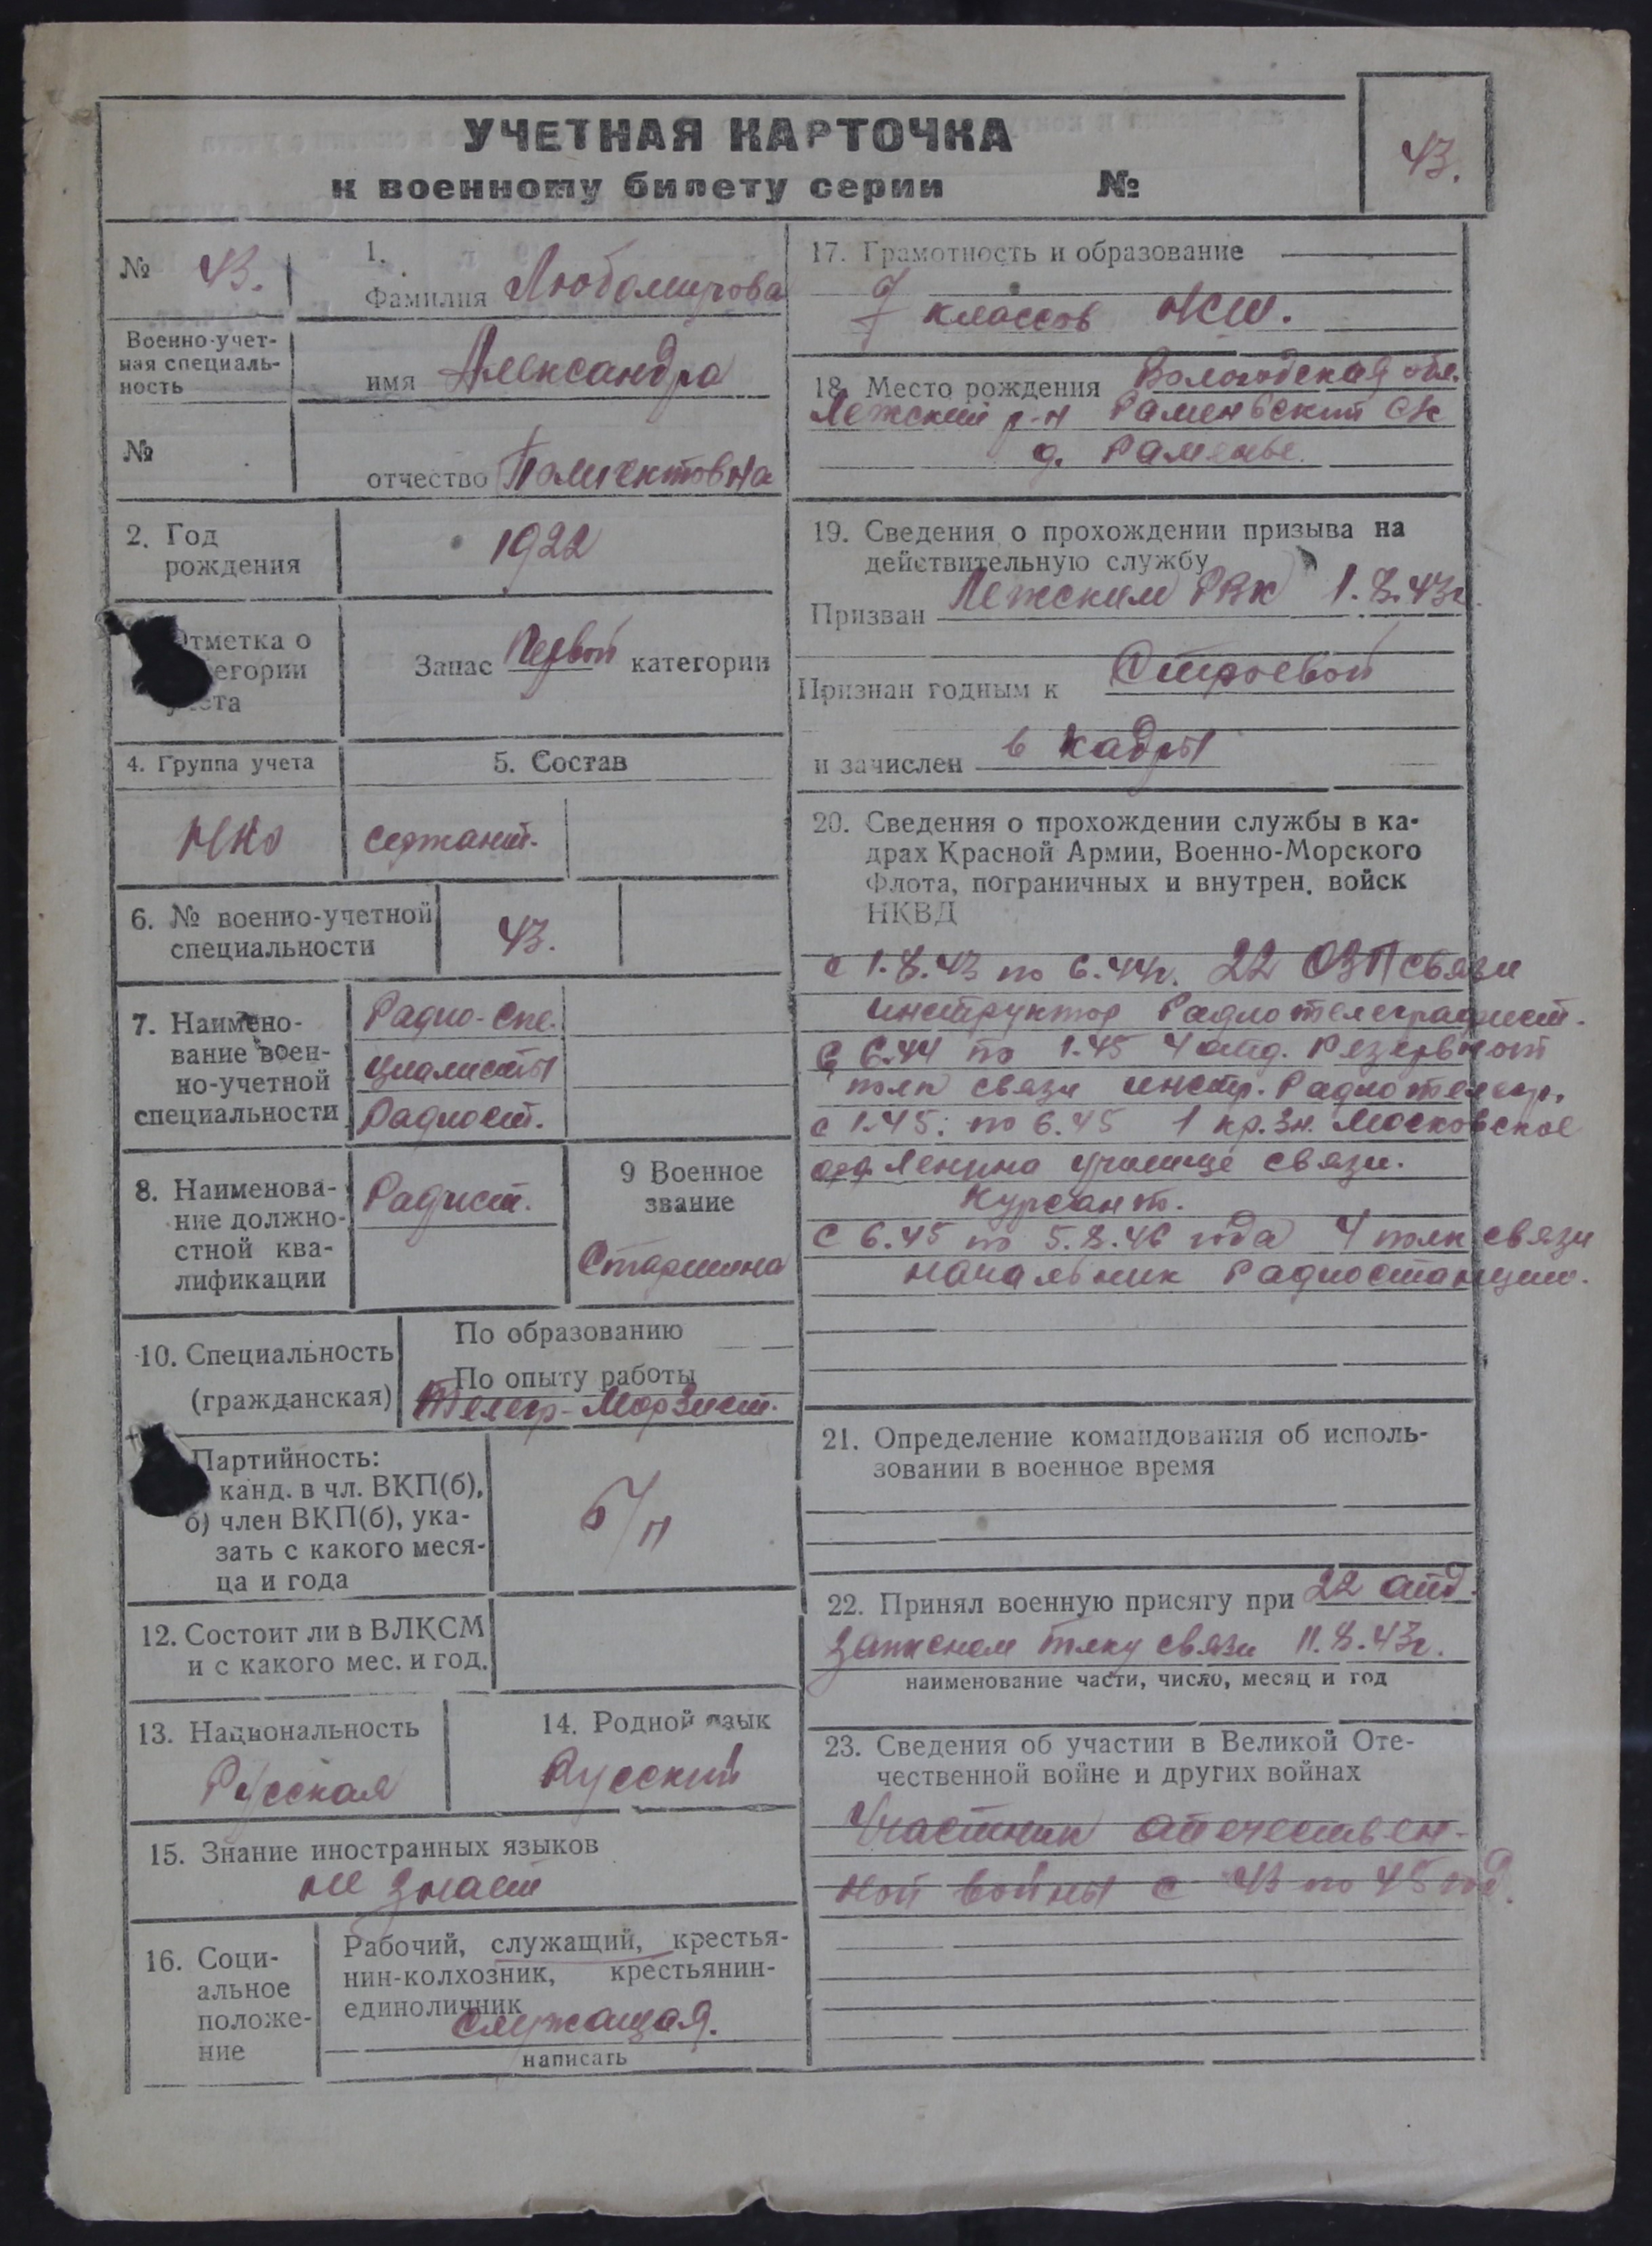 УЧЕТНАЯ КАРТОЧКА
к военному билету серии №
43.
№ 43.
1.
Фамилия Любомирова
Военно-учет-
ная специаль-
ность
имя Александра
№
отчество Полиектовна
2. Год
рождения
1922
Отметка о
категории
учета
Запас Первой категории
4. Группа учета
5. Состав
НКО
сержант.
6. № военно-учетной
специальности
43.
7. Наимено-
вание воен-
но-учетной
специальности
Радио-спе-
циалисты
Радист.
8. Наименова-
ние должно-
стной ква-
лификации
Радист.
9 Военное
звание
Старшина
10. Специальность
(гражданская)
По образованию
По опыту работы
Телегр-Морзист.
Партийность:
канд. в чл. ВКП(б),
б) член ВКП(б), ука-
зать с какого меся-
ца и года
б/п
12. Состоит ли в ВЛКСМ
и с какого мес. и год.
13. Национальность
Русская
14. Родной язык
Русский
15. Знание иностранных языков
не знает
16. Соци-
альное
положе-
ние
Рабочий, служащий, крестья-
нин-колхозник, крестьянин-
единоличник
Служащая.
написать
17. Грамотность и образование
7 классов НСШ.
18. Место рождения Вологодская обл.
Лежский р-н Раменьский с/с
д. Раменье.
19. Сведения о прохождении призыва на
действительную службу
Призван Лежским РВК 1.8.43г.
Признан годным к Строевой
и зачислен в кадры
20. Сведения о прохождении службы в ка-
драх Красной Армии, Военно-Морского
Флота, пограничных и внутрен. войск
НКВД
с 1.8.43 по 6.44г. 22 ОЗП связи
инструктор Радиотелеграфист.
С 6.44 по 1.45 4 отд. Резервной
полк связи инстр. Радиотелегр.
с 1.45. по 6.45 1 кр.Зн. Московское
Ленина училище связи.
Курсант.
С 6.45 по 5.8.46 года 4 полк связи
начальник Радиостанции.
21. Определение командования об исполь-
зовании в военное время
22. Принял военную присягу при 22 отд.
запасном полку связи 11.8.43г.
наименование части, число, месяц и год
23. Сведения об участии в Великой Оте-
чественной войне и других войнах
Участник отечествен-
ной войны с 43 по 45 год.